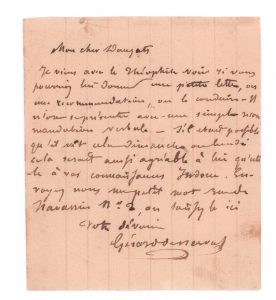 Mon cher Dauzats
Je viens avec le Théophile voir si vous
pourriez lui donner une petite lettre, ou
une recommandation, ou le conduire. Il
n'ose se présenter avec une simple recom
mandation verbale. S'il était possible
qu'il vît cela dimanche ou lundi
cela serait aussi agréable à lui qu'utile
à vos connaissances. En-
voyez nous un petit mot rue de
Navarin No 2, ou
Votre dévoué
Gérard de Nerval